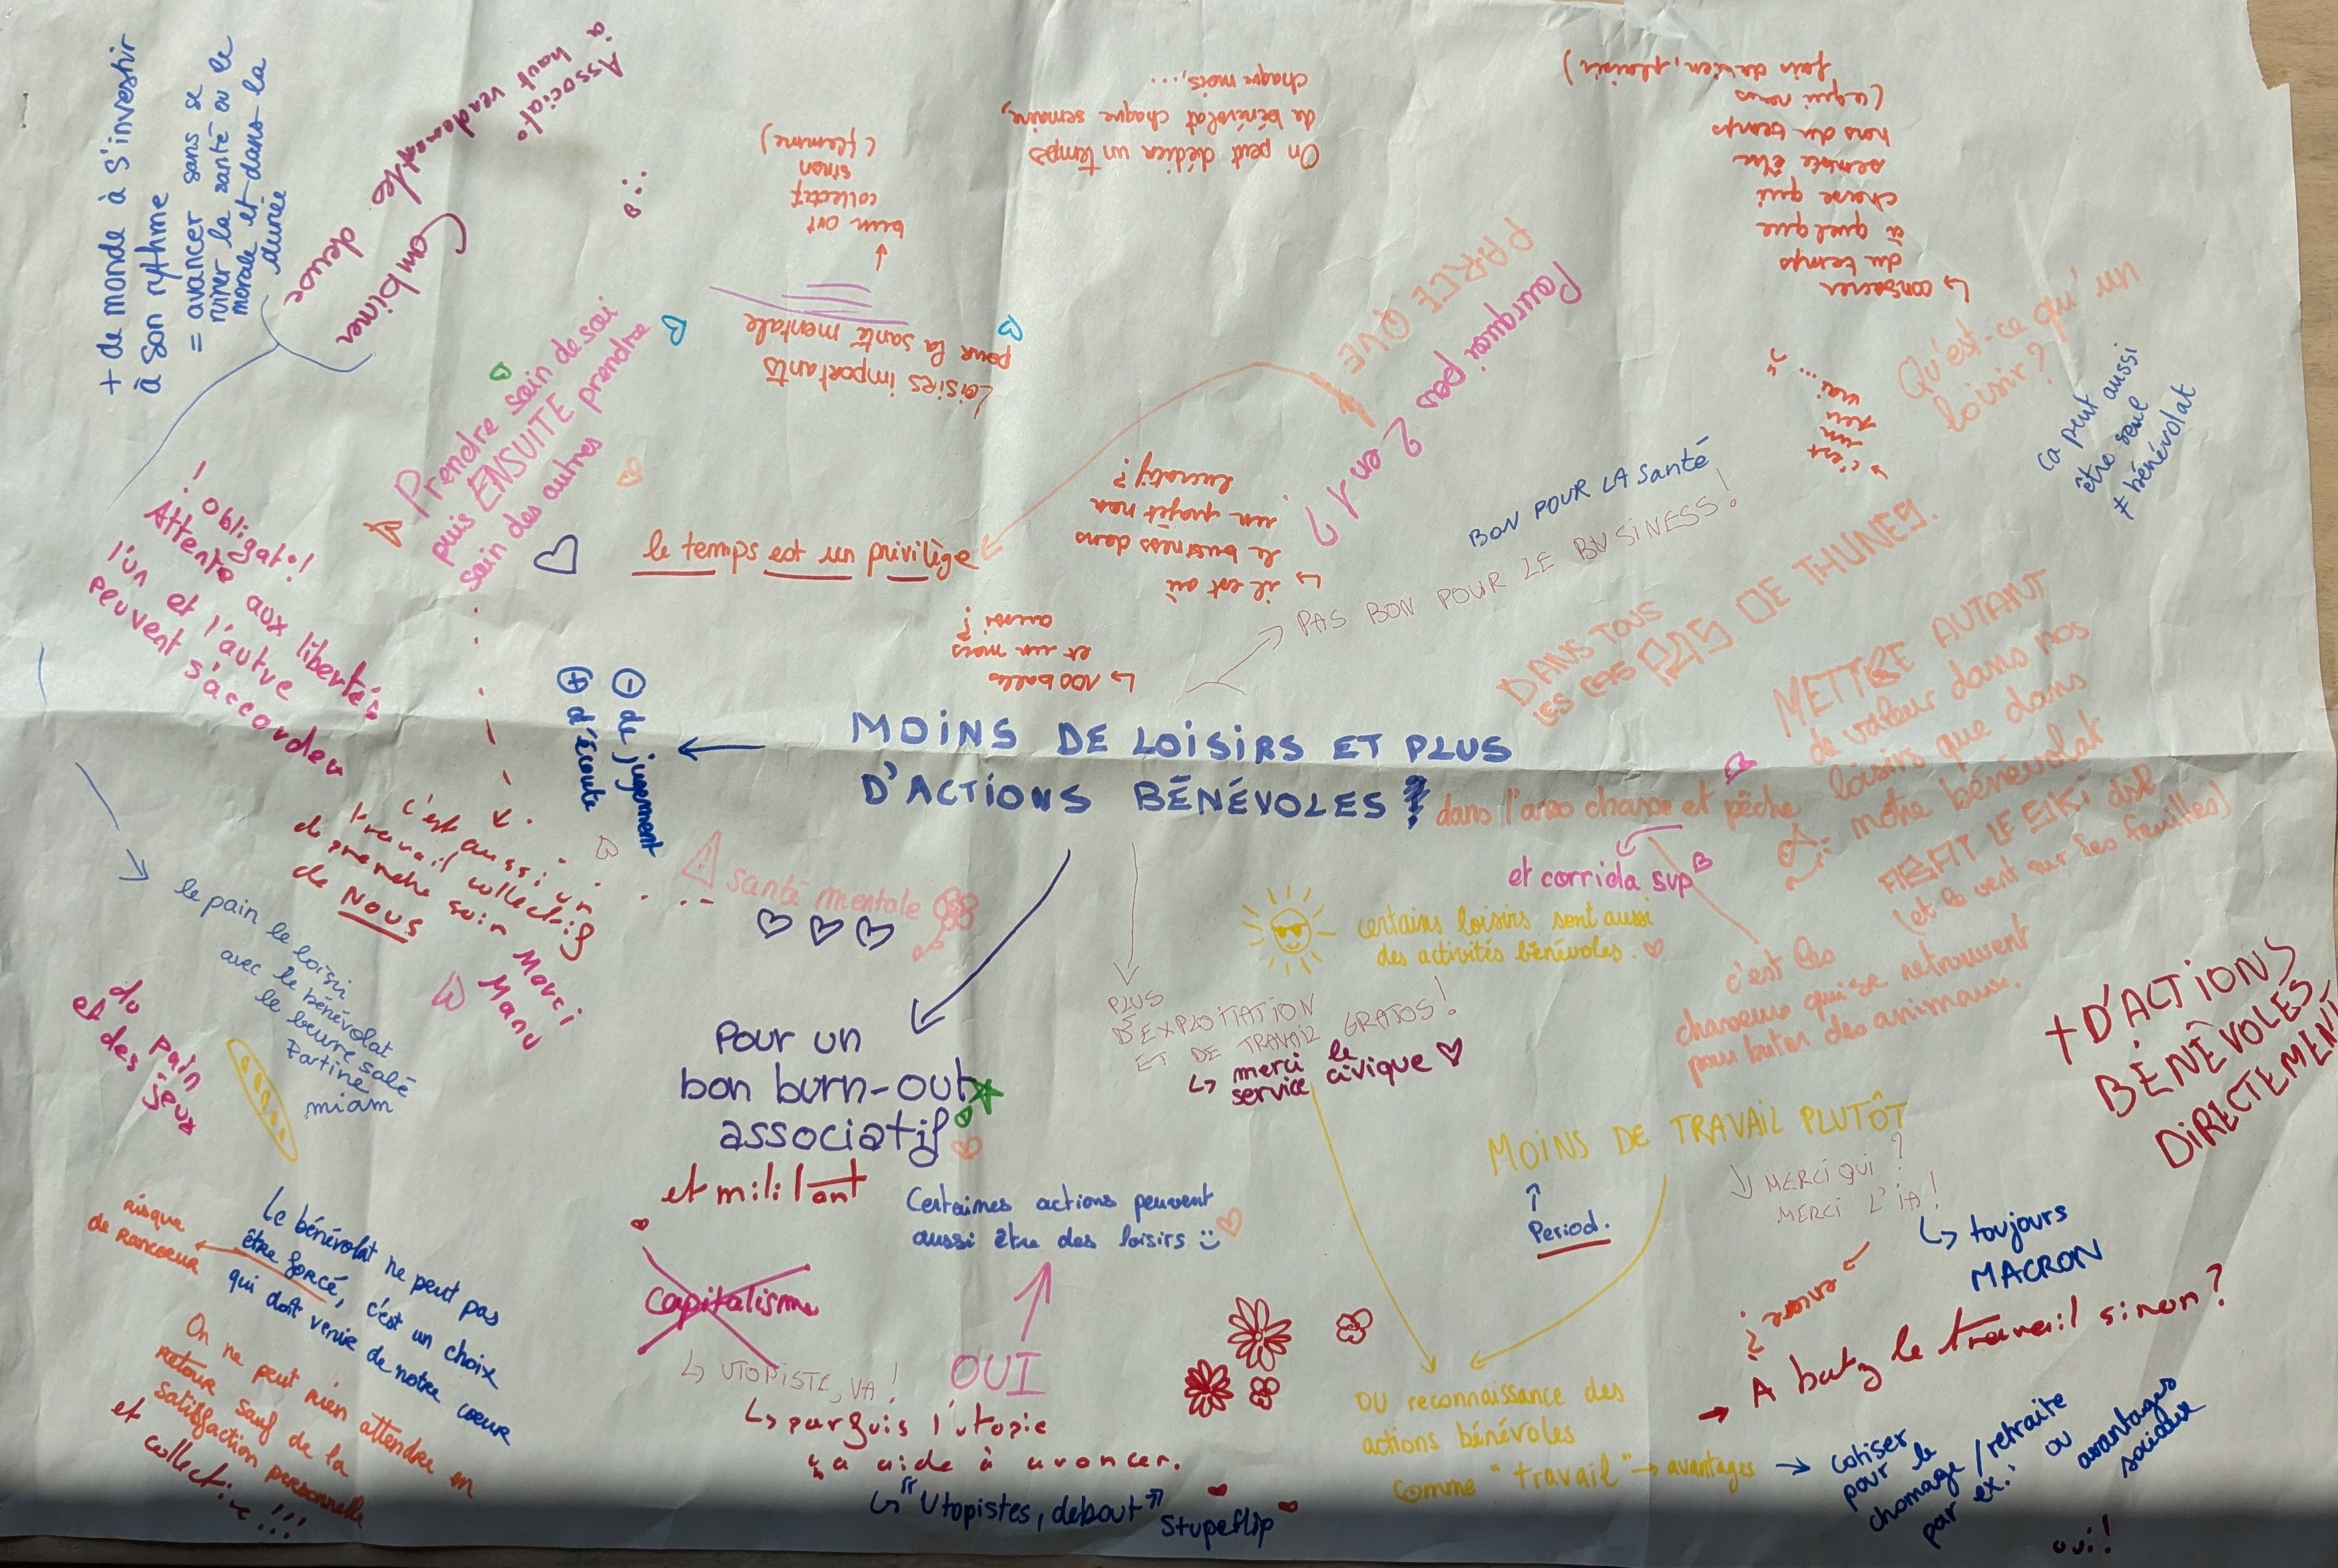 MOINS DE LOISIRS ET PLUS
D'ACTIONS BÉNÉVOLES ?
+ de monde à s'investir
à son rythme
= avancer sans se
ruiner la santé ou le
morale et dans la
durée
Associato
à haut vendement
Combiner
les deux
...
Prendre soin de soi
puis ENSUITE prendre
soin des autres
! obligat°!
Attento aux libertés
l'un et l'autre
peuvent s'accorder
Loisirs importants
pour la santé mentale
burn out
collectif
sinon
(flemme)
On peut dédier un temps
de bénévolat chaque semaine,
chaque mois, ...
PARCE QUE
Pourquoi pas 2 en 1 ?
le temps est un privilège
↳ il est où
le business dans
un projet non
lucratif ?
↳ 100 balles
et un mars
aussi ?
BON POUR LA Santé
PAS BON POUR LE BUSINESS !
Qu'est-ce qu'un
loisir ?
↳ consacrer
du temps
à quelque
chose qui
semble être
hors du temps
(ce qui nous
fait du bien, plaisir)
ça peut aussi
être seul
≠ bénévolat
c'est
un
peu
vrai...
DANS TOUS
LES CAS PAS DE THUNES.
METTRE AUTANT
de valeur dans nos
loisirs que dans
notre bénévolat
(et le vent sur les feuilles)
dans l'asso chasse et pêche
et corrida svp
c'est les
chasseurs qui se retrouvent
pour buter des animaux.
- de jugement
+ d'écoute
c'est aussi un
travail collectif
de prendre soin
de NOUS
Merci
Manu
santé mentale
le pain le loisir
avec le bénévolat
le beurre salé
Tartine
miam
du pain
et des jeux
Pour un
bon burn-out
associatif
et militant
PLUS
D'EXPLOITATION
ET DE TRAVAIL GRATOS !
↳ merci le
service civique
certains loisirs sont aussi
des activités bénévoles.
+ D'ACTIONS
BÉNÉVOLES
DIRECTEMENT
MOINS DE TRAVAIL PLUTÔT
Period.
MERCI QUI ?
MERCI L'IA !
↳ toujours
MACRON
encore ?
→ A batz le travail sinon ?
Certaines actions peuvent
aussi être des loisirs
OUI
Capitalisme
↳ UTOPISTE, VA !
↳ parfois l'utopie
ça aide à avancer.
↳ "Utopistes, debout"
Stupeflip
Le bénévolat ne peut pas
être forcé, c'est un choix
qui doit venir de notre coeur
risque
de rancoeur
On ne peut rien attendre en
retour sauf de la
satisfaction personnelle
et collective !!!
OU reconnaissance des
actions bénévoles
comme "travail" → avantages
→ cotiser
pour le
chomage / retraite
par ex. ou
avantages
sociaux
oui !